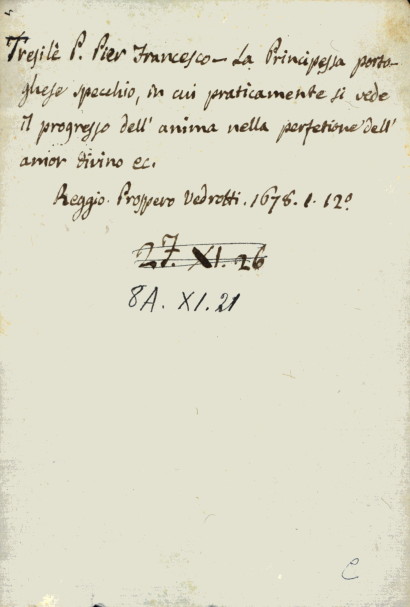 Tresilè P. Pier Francesco – La Principessa porto-
ghese specchio, in cui praticamente si vede
il progresso dell' anima nella perfetione dell'
amor divino ec.
Reggio. Prospero Vedrotti. 1678. 1. 12º
27. XI. 26
8A. XI. 21
C